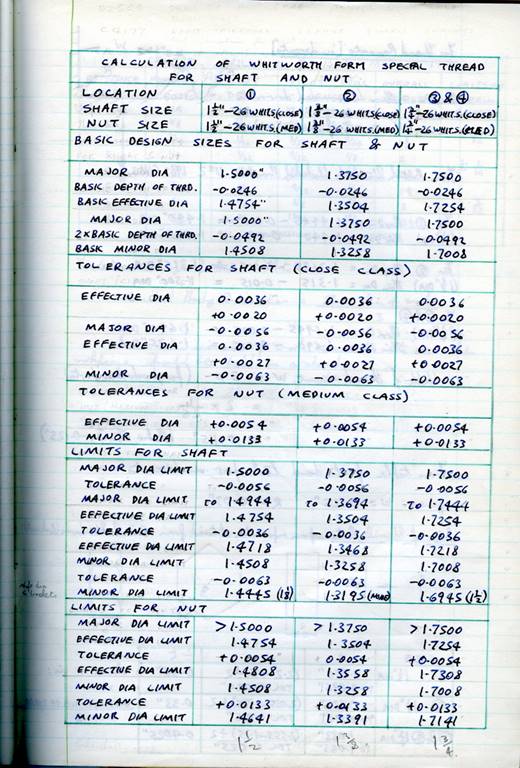 CALCULATION OF WHITWORTH FORM SPECIAL THREAD
FOR SHAFT AND NUT
LOCATION ① ② ③ & ④
SHAFT SIZE 1½"-26 WHITS(CLOSE) 1⅜"-26 WHITS(CLOSE) 1¾"-26 WHITS.(CLOSE)
NUT SIZE 1½"-26 WHITS.(MED) 1⅜"-26 WHITS.(MED) 1¾"-26 WHITS.(MED)
BASIC DESIGN SIZES FOR SHAFT & NUT
MAJOR DIA 1.5000" 1.3750 1.7500
BASIC DEPTH OF THRD. -0.0246 -0.0246 -0.0246
BASIC EFFECTIVE DIA 1.4754" 1.3504 1.7254
MAJOR DIA 1.5000" 1.3750 1.7500
2XBASIC DEPTH OF THRD. -0.0492 -0.0492 -0.0492
BASIC MINOR DIA 1.4508 1.3258 1.7008
TOLERANCES FOR SHAFT (CLOSE CLASS)
EFFECTIVE DIA 0.0036 0.0036 0.0036
+0.0020 +0.0020 +0.0020
MAJOR DIA -0.0056 -0.0056 -0.0056
EFFECTIVE DIA 0.0036 0.0036 0.0036
+0.0027 +0.0027 +0.0027
MINOR DIA -0.0063 -0.0063 -0.0063
TOLERANCES FOR NUT (MEDIUM CLASS)
EFFECTIVE DIA +0.0054 +0.0054 +0.0054
MINOR DIA +0.0133 +0.0133 +0.0133
LIMITS FOR SHAFT
MAJOR DIA LIMIT 1.5000 1.3750 1.7500
TOLERANCE -0.0056 -0.0056 -0.0056
MAJOR DIA LIMIT TO 1.4944 TO 1.3694 TO 1.7444
EFFECTIVE DIA LIMIT 1.4754 1.3504 1.7254
TOLERANCE -0.0036 -0.0036 -0.0036
EFFECTIVE DIA LIMIT 1.4718 1.3468 1.7218
MINOR DIA LIMIT 1.4508 1.3258 1.7008
TOLERANCE -0.0063 -0.0063 -0.0063
MINOR DIA LIMIT 1.4445 1.3195 1.6945 (1½)
LIMITS FOR NUT
MAJOR DIA LIMIT >1.5000 >1.3750 >1.7500
EFFECTIVE DIA LIMIT 1.4754 1.3504 1.7254
TOLERANCE +0.0054 0.0054 +0.0054
EFFECTIVE DIA LIMIT 1.4808 1.3558 1.7308
MINOR DIA LIMIT 1.4508 1.3258 1.7008
TOLERANCE +0.0133 +0.0133 +0.0133
MINOR DIA LIMIT 1.4641 1.3391 1.7141
1½ 1¾